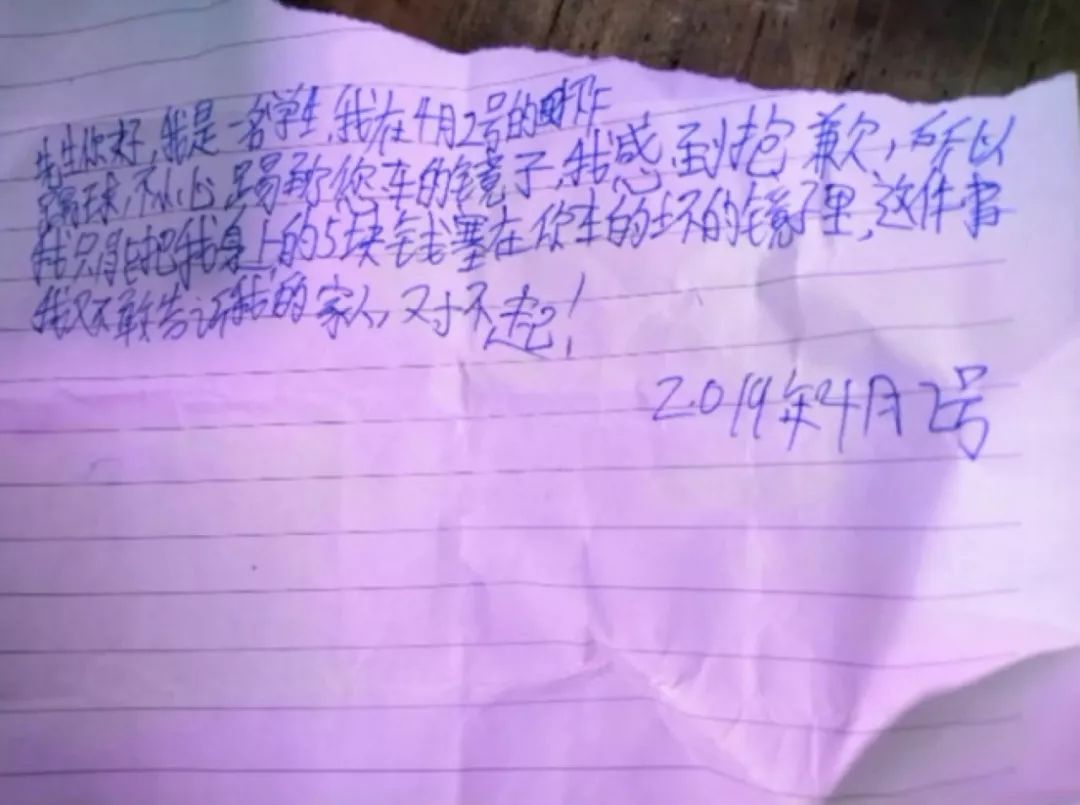 先生你好,我是一名学生,我在4月2号的时候
踢球,不小心踢到了您车的镜子,我感到抱歉,所以
我只能把我身上的5块钱塞在你车的坏的镜子里,这件事
我又不敢告诉我的家人,对不起!
2019年4月2号